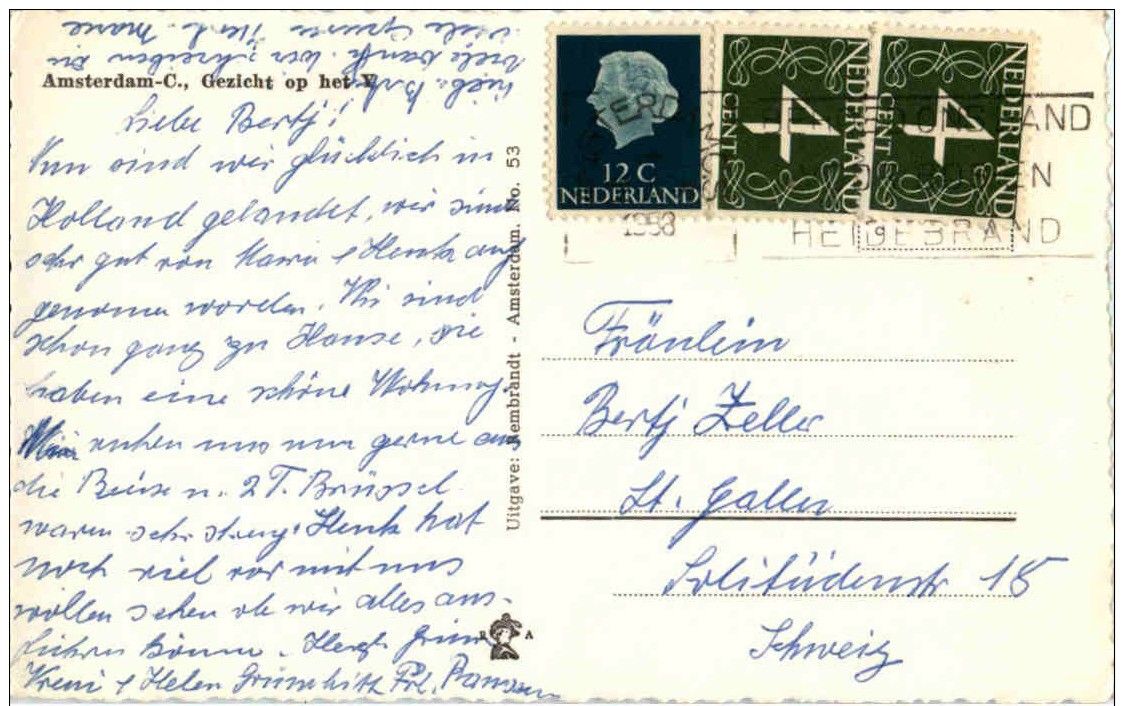 Amsterdam-C., Gezicht op het Y
Liebe Bertj!
Nun sind wir glücklich in
Holland gelandet, wir sind
sehr gut von & Henk auf
genomen worden. Wir sind
schon ganz zu Hause, sie
haben eine schöne Wohnung.
Wir ruhen uns nun gerne aus
die Reise u. 2 T. Brüssel
waren sehr streng. Henk hat
noch viel vor mit uns
wollen sehen ob wir alles aus-
führen können. Herzl. Grüsse
Vreni & Helen
viele Grüsse Henk. Marie
Uitgave: Rembrandt - Amsterdam. No. 53
R A
12 C
NEDERLAND
4
CENT
NEDERLAND
4
CENT
NEDERLAND
1958
HEIDEBRAND
Fräulein
Bertj Zeller
St. Gallen
Solitüdenstr 18
Schweiz